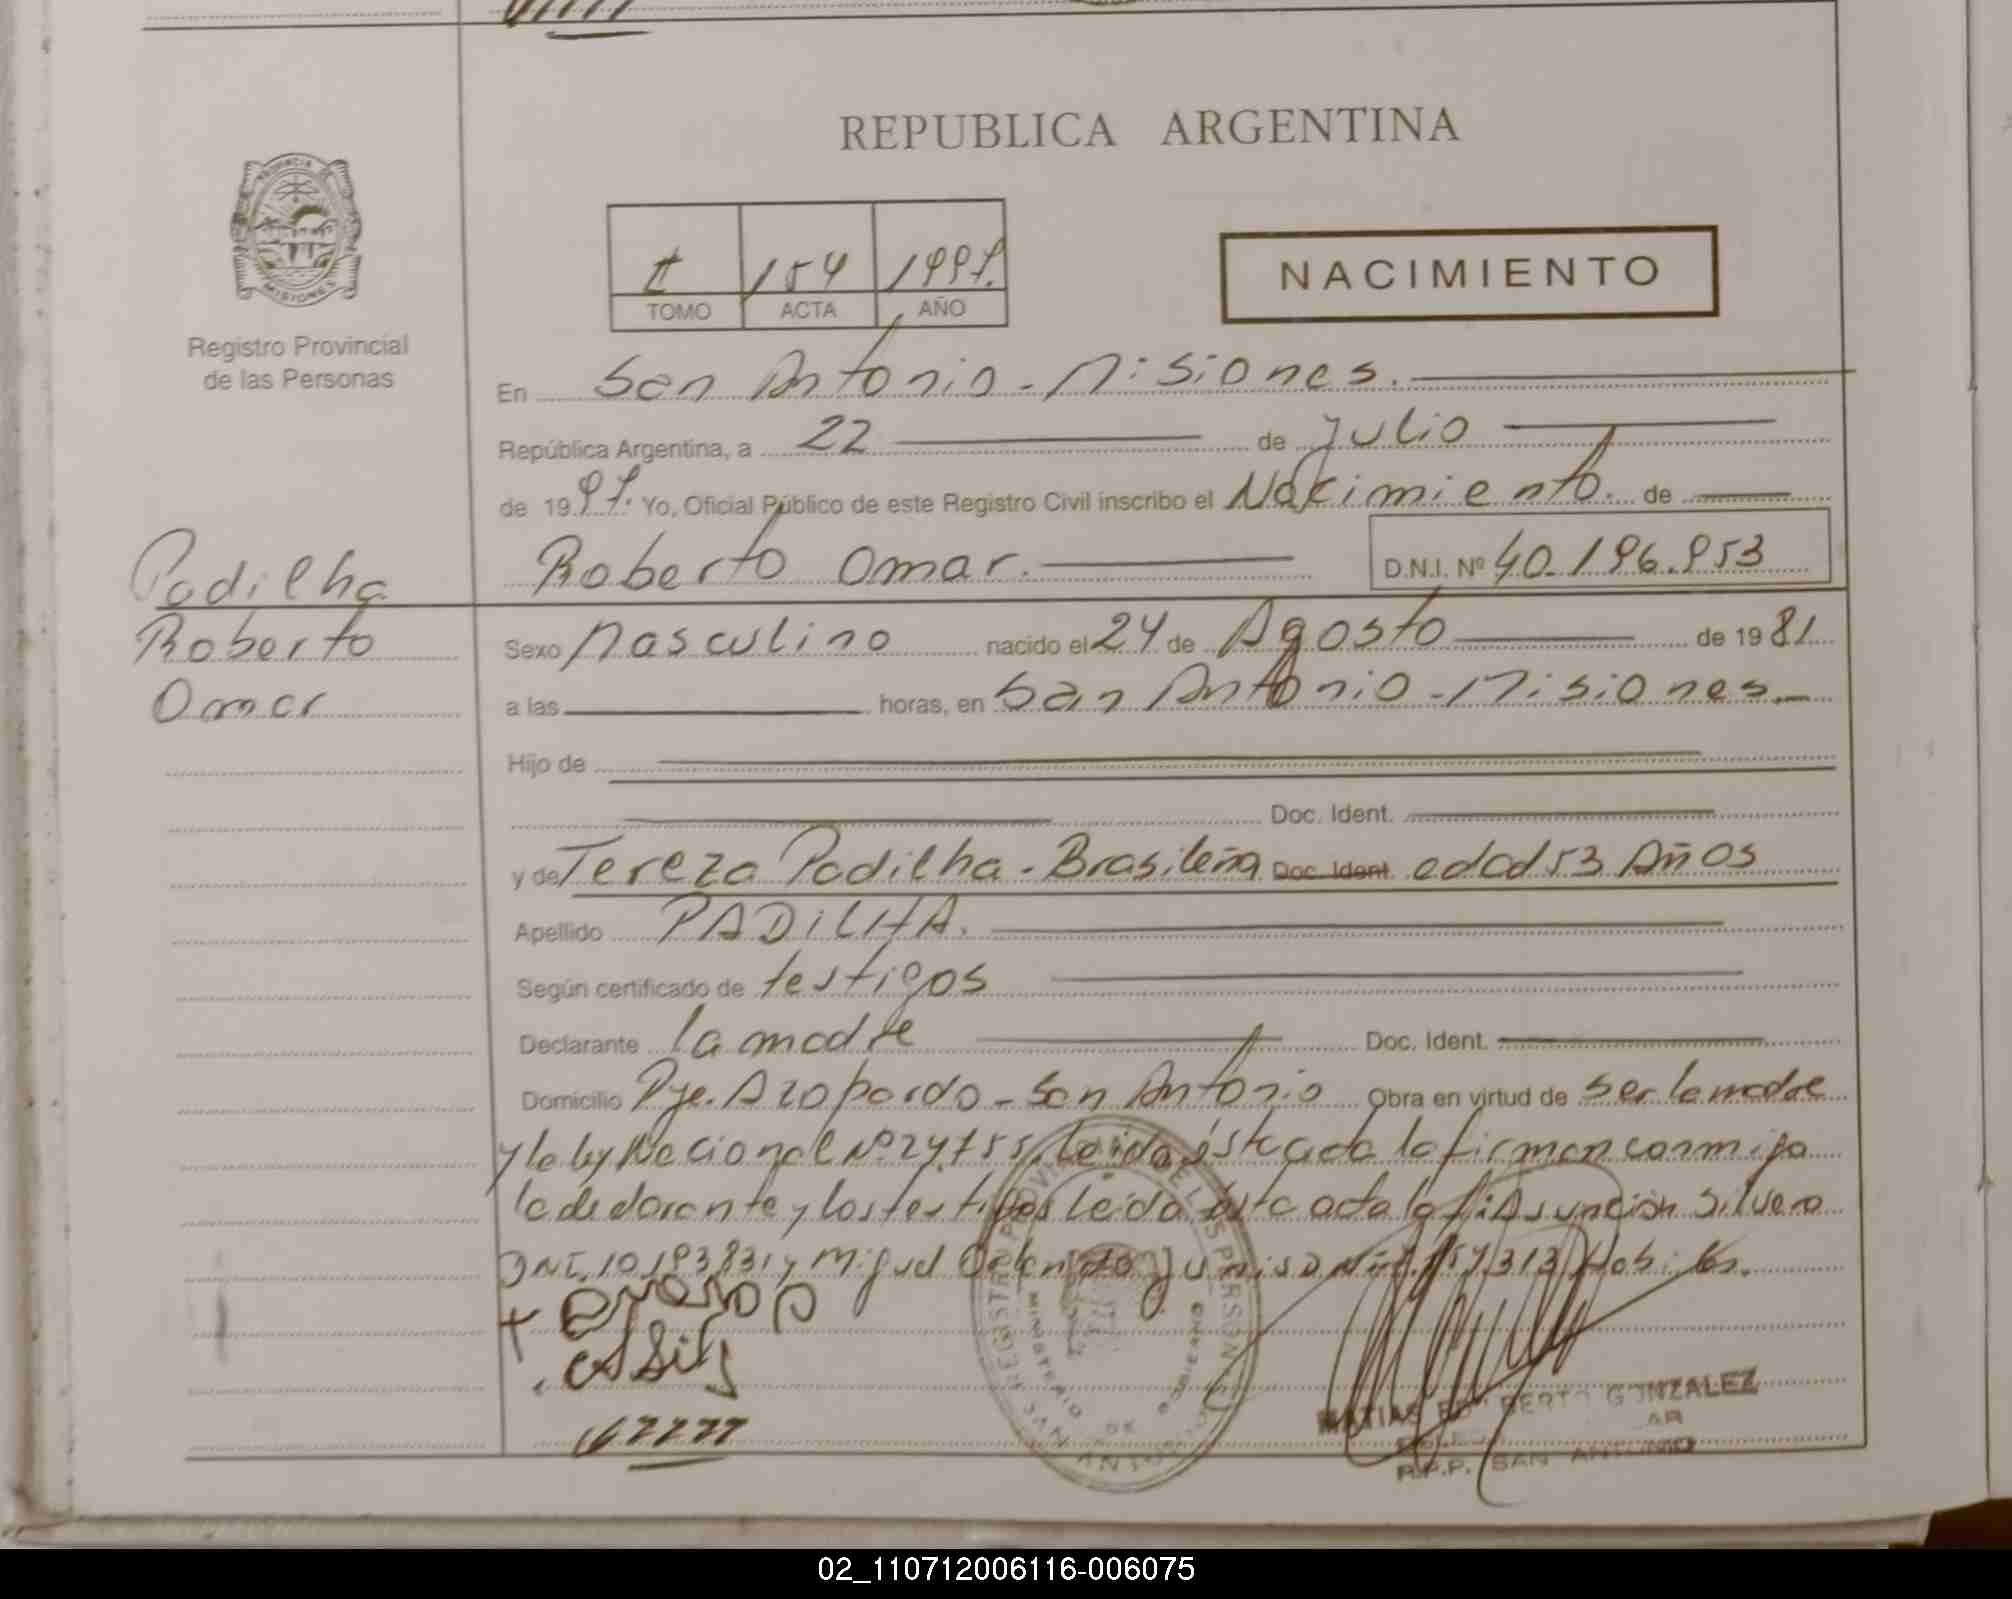 REPUBLICA ARGENTINA
PROVINCIA DE
MISIONES
Registro Provincial
de las Personas
154 1997.
TOMO ACTA AÑO
NACIMIENTO
En San Antonio - Misiones.
República Argentina, a 22 de Julio
de 1997. Yo, Oficial Público de este Registro Civil inscribo el Nacimiento. de
Padilha
Roberto
Omar
Roberto Omar. D.N.I. Nº 40.196.953
Sexo Masculino nacido el 24 de Agosto de 1981
a las horas, en San Antonio - Misiones.
Hijo de
Doc. Ident.
y de Tereza Padilha - Brasileña Doc. Ident. edad 53 Años
Apellido PADILHA.
Según certificado de testigos
Declarante la madre Doc. Ident.
Domicilio Pje. Azopardo - San Antonio Obra en virtud de ser la madre
y la ley Nacional Nº 24.755. Leida ésta acta la firman conmigo
la declarante y los testigos Leida ésta acta la Asunción Silvero
DNI. 10193831 y Miguel 313 Habiles.
MATIAS GONZALEZ
R.P.P. SAN ANTONIO
02_110712006116-006075